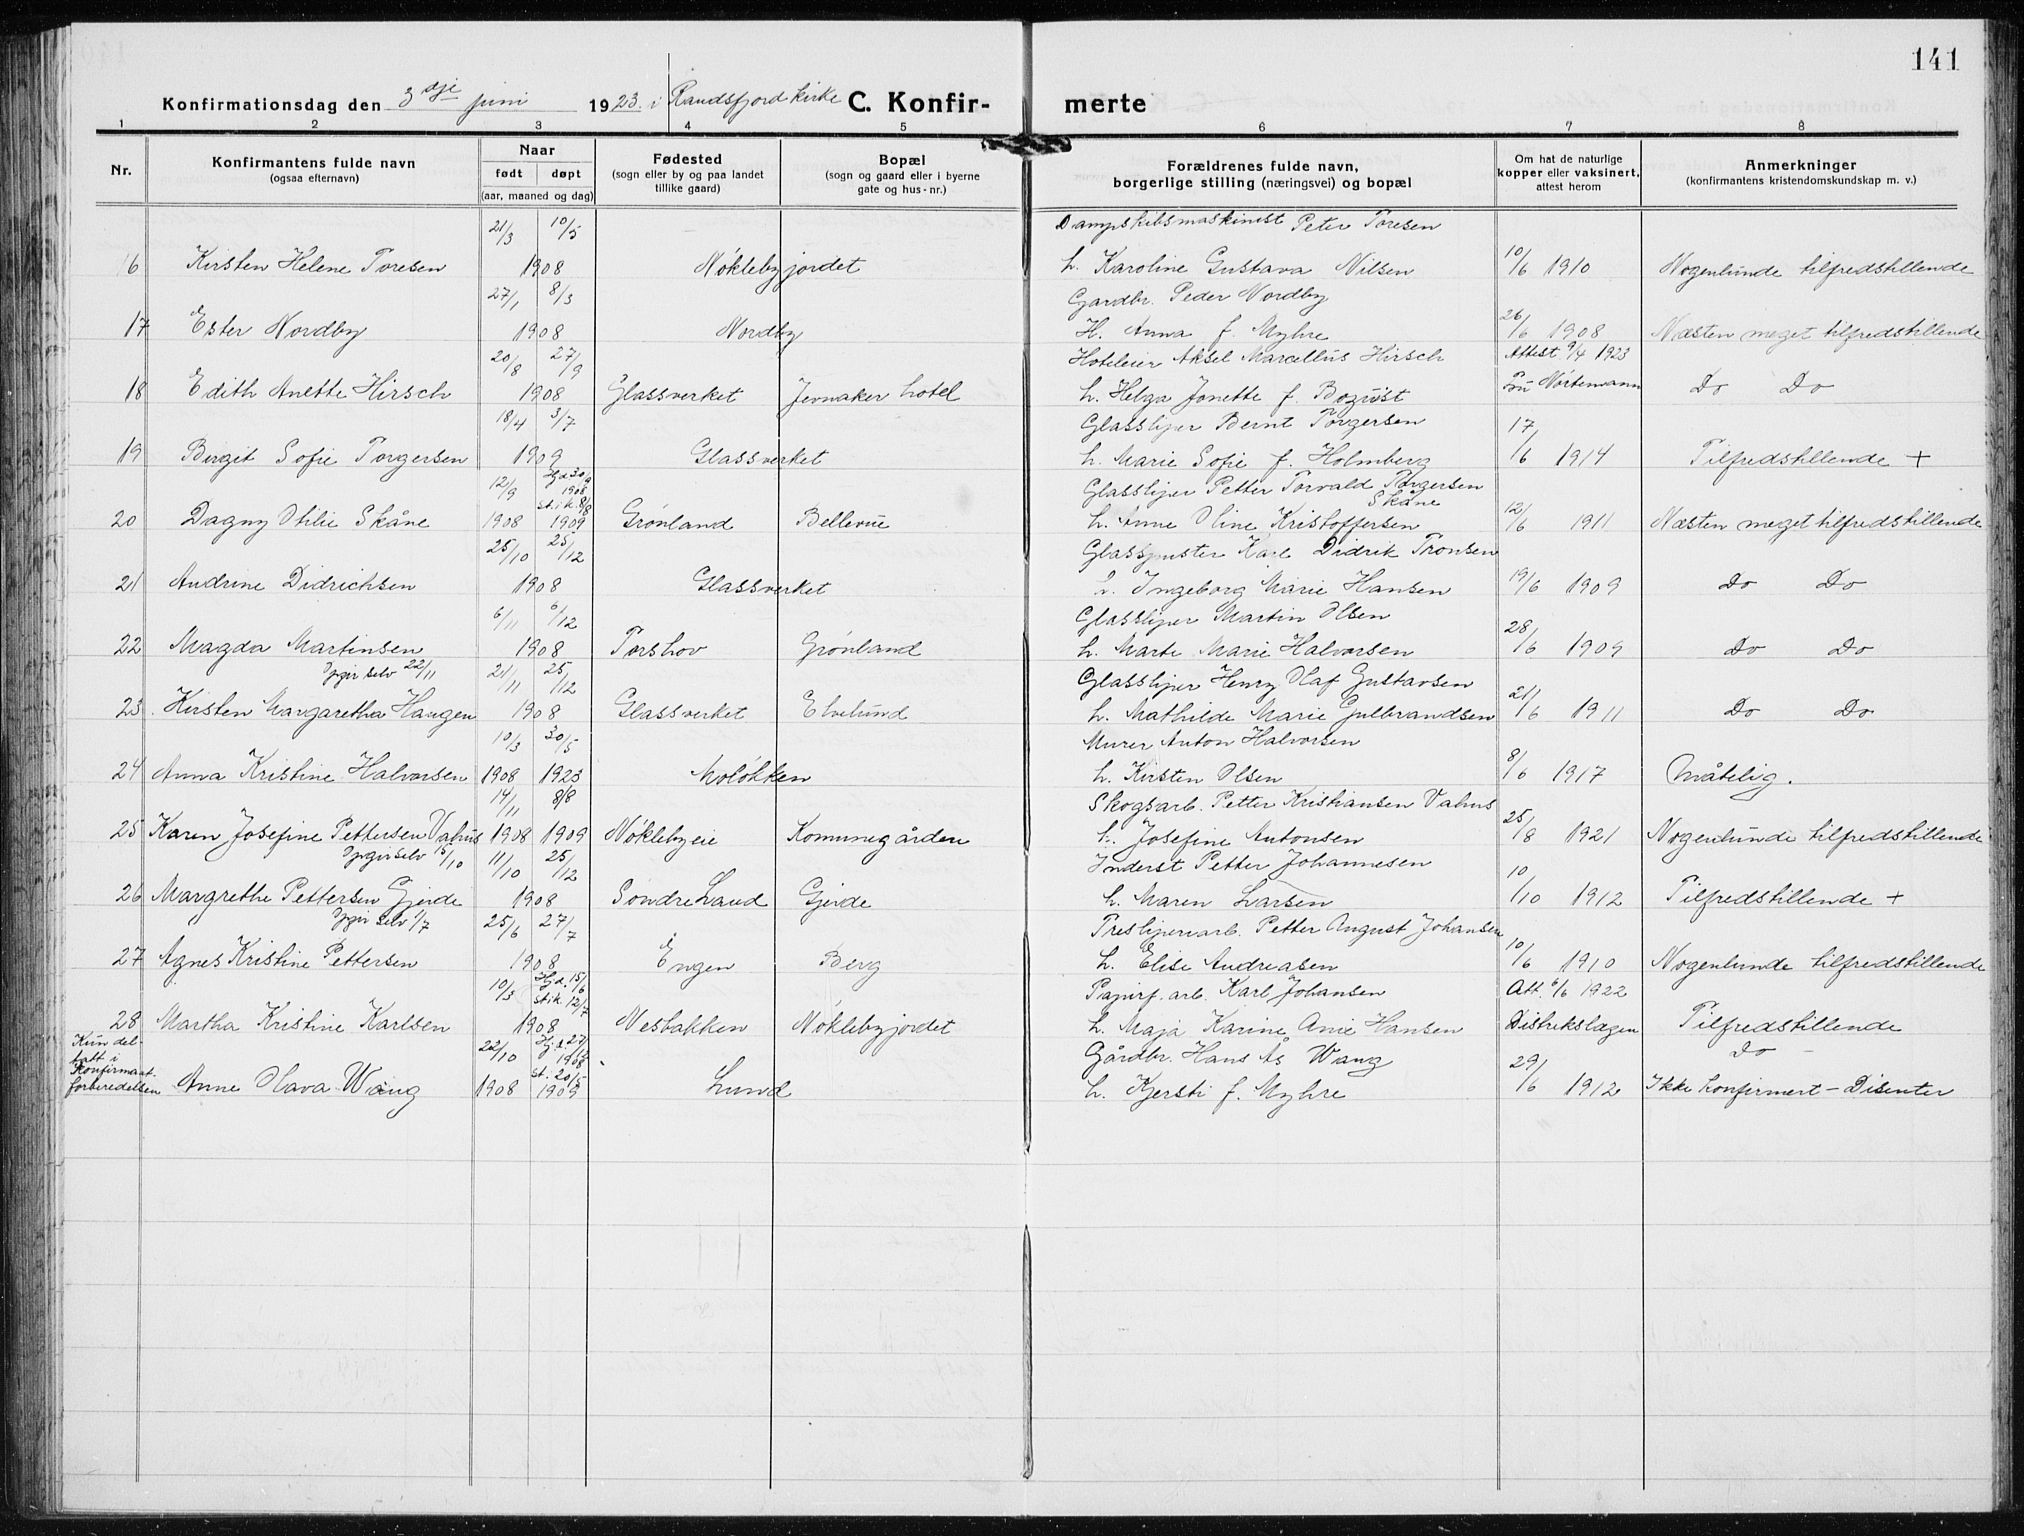 141
Konfirmationsdag den 3dje juni 1923. i Randsfjord kirke C. Konfir- merte
1 2 3 4 5 6 7 8
Nr. Konfirmantens fulde navn (ogsaa efternavn) Naar født døpt (aar, maaned og dag) Fødested (sogn eller by og paa landet tillike gaard) Bopæl (sogn og gaard eller i byerne gate og hus-nr.) Forældrenes fulde navn, borgerlige stilling (næringsvei) og bopæl Om hat de naturlige kopper eller vaksinert, attest herom Anmerkninger (konfirmantens kristendomskundskap m. v.)
21/3 10/5 Dampskibsmaskinist Peter Toresen
16 Kirsten Helene Toresen 1908 Nøklebyjordet h. Karoline Gustava Nilsen 10/6 1910 Nogenlunde tilfredstillende
27/1 8/3 Gardbr. Peder Nordby
17 Ester Nordby 1908 Nordby H. Anna f. Myhre 26/6 1908 Næsten meget tilfredstillende
20/8 27/9 Hoteleier Aksel Marcellus Hirsch Attest 9/4 1923
18 Edith Anette Hirsch 1908 Glassverket Jevnaker hotel h. Helga Jonette f. Bogüst Do Do
18/4 3/7 Glassliper Bernt Torgersen
19 Birgit Sofie Torgersen 1909 Glassverket h. Marie Sofie f. Holmberg 17/6 1914 Tilfredstillende +
12/9 Hjd 30/9 1908 st. i k. 8/8 Glassliper Petter Torvald Torgersen Skåne
20 Dagny Otilie Skåne 1908 1909 Grønland Bellevue h. Anne Oline Kristoffersen 12/6 1911 Næsten meget tilfredstillende
25/10 25/12 Glasspuster Karl Didrik Tronsen
21 Andrine Didrichsen 1908 Glassverket h. Ingeborg Marie Hansen 19/6 1909 Do Do
6/11 6/12 Glassliper Martin Olsen
22 Magda Martinsen 1908 Torshov Grønland h. Marte Marie Halvorsen 28/6 1909 Do Do
Opgir selv 22/11 21/11 25/12 Glassliper Henry Olaf Gustavsen
23. Kirsten Margaretha Haugen 1908 Glassverket Elvelund h. Mathilde Marie Gulbrandsen 21/6 1911 Do Do
10/3 30/5 Murer Anton Halvorsen
24 Anna Kristine Halvorsen 1908 1923 Moløkken h. Kirsten Olsen 8/6 1917 Måtelig.
14/11 8/8 Skogsarb. Petter Kristiansen Vahus
25 Karen Josefine Pettersen Vahus 1908 1909 Nøklebyeie Komunegården h. Josefine Antonsen 25/8 1921 Nogenlunde tilfredstillende
Opgir selv 5/10 11/10 25/12 Inderst Petter Johannesen
26 Margrethe Pettersen Gjerde 1908 Søndre Land Gjerde h. Maren Larsen 10/10 1912 Tilfredstillende +
Opgir selv 1/7 25/6 27/7 Tresliperiarb. Petter August Johansen
27 Agnes Kristine Pettersen 1908 Engen Berg h. Elise Andreasen 10/6 1910 Nogenlunde tilfredstillende
10/3 Hjd. 15/6 st i k. 12/7 Papirf. arb. Karl Johansen Att. 6/6 1922
28 Martha Kristine Karlsen 1908 Nesbakken Nøklebyjordet h. Maja Karine Anie Hansen Distrikslægen Tilfredstillende
Kun deltatt i Konfirmantforberedelsen 22/10 Hjd. 27/12 1908 Gårdbr. Hans Ås Wang Do -
Anne Olava Wang 1908 st. 20/5 1909 Lund h. Kjersti f. Myhre 29/6 1912 Ikke konfirmert - Disenter